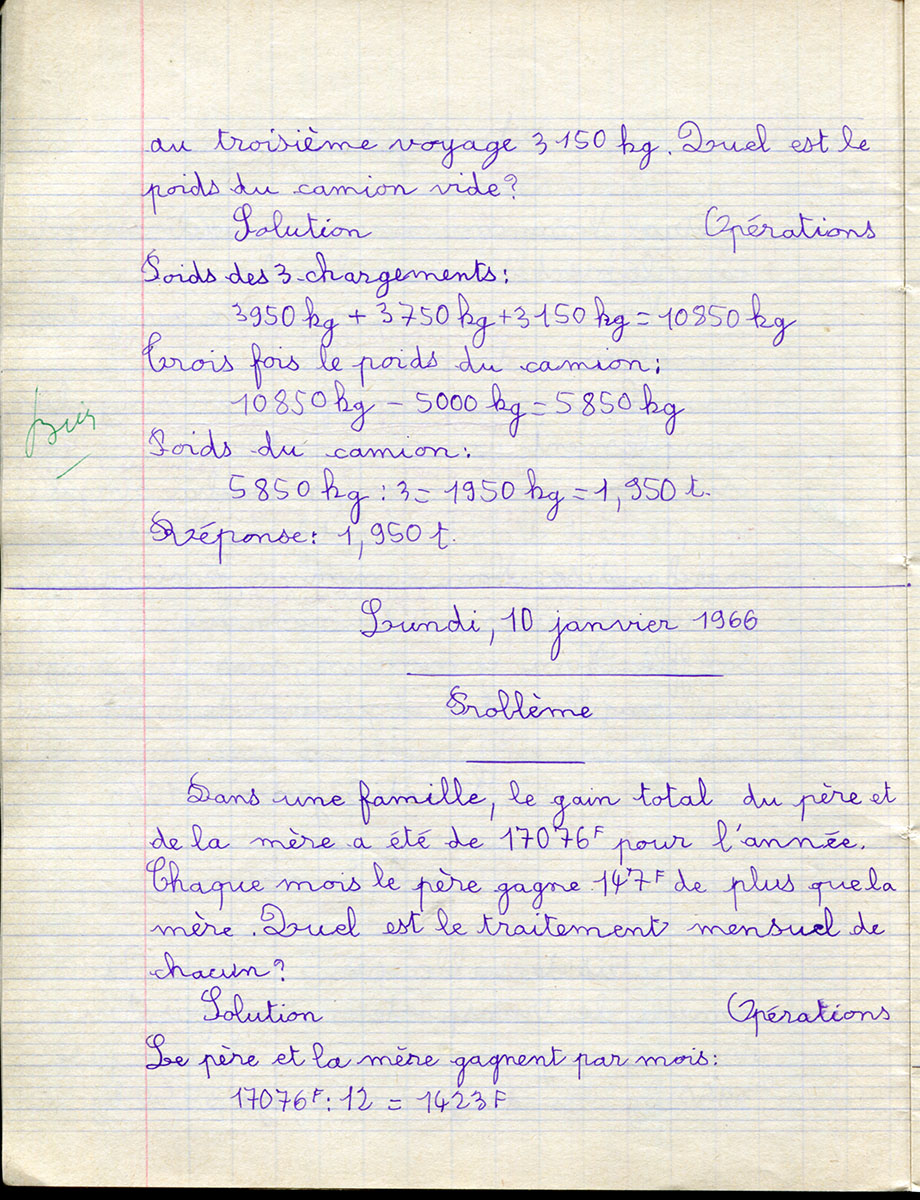 au troisième voyage 3150 kg. Quel est le
poids du camion vide?
Solution Opérations
Poids des 3 chargements:
3950 kg + 3750 kg + 3150 kg = 10850 kg
Trois fois le poids du camion:
10850 kg - 5000 kg = 5850 kg
Poids du camion:
5850 kg : 3 = 1950 kg = 1,950 t.
Réponse: 1,950 t.
Lundi, 10 janvier 1966
Problème
Dans une famille, le gain total du père et
de la mère a été de 17076F pour l'année.
Chaque mois le père gagne 147F de plus que la
mère. Quel est le traitement mensuel de
chacun?
Solution Opérations
Le père et la mère gagnent par mois:
17076F : 12 = 1423F